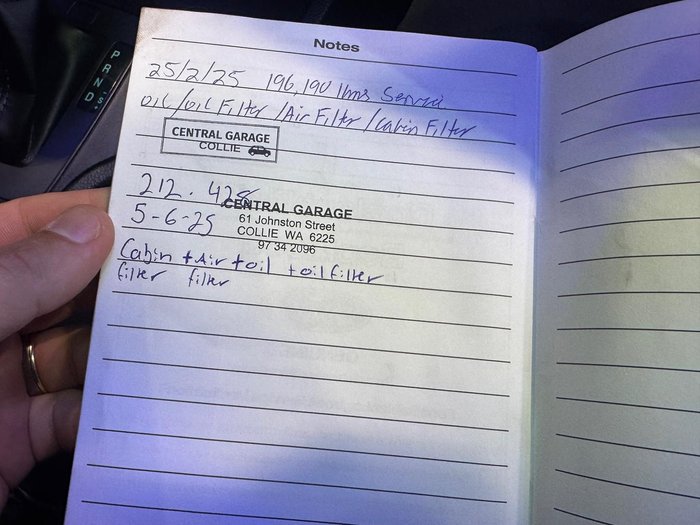 P
R
N
D
S
Notes
25/2/25 196,190 kms Service
oil/oil Filter/Air Filter/Cabin Filter
CENTRAL GARAGE
COLLIE
212.428
5-6-25
CENTRAL GARAGE
61 Johnston Street
COLLIE WA 6225
97 34 2096
Cabin + Air + oil + oil filter
filter filter